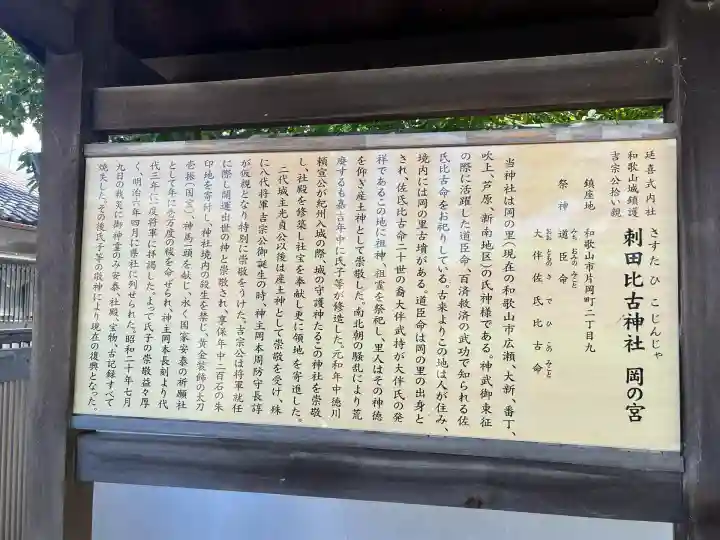 延喜式内社
和歌山城鎮護
吉宗公拾い親
さすたひこじんじゃ
刺田比古神社 岡の宮
鎮座地 和歌山市片岡町二丁目九
祭神 道臣命
みちおみのみこと
大伴佐氐比古命
おおとものさでひこのみこと
当神社は岡の里(現在の和歌山市広瀬、大新、番丁、
吹上、芦原、新南地区)の氏神様である。神武御東征
の際に活躍した道臣命、百済救済の武功で知られる佐
氐比古命をお祀りしている。古来よりこの地は人が住み、
境内には岡の里古墳がある。道臣命は岡の里の出身と
され、佐氐比古命二十世の裔大伴武持が大伴氏の発
祥であるこの地に祖神、祖霊を祭祀し、里人はその神徳
を仰ぎ産土神として崇敬した。南北朝の騒乱により荒
廃するも嘉吉年中に氏子等が修造した。元和年中徳川
頼宣公が紀州入城の際、城の守護神たるこの神社を崇敬
し、社殿を修築し社宝を奉献し更に領地を寄進した。
二代城主光貞公以後は産土神として崇敬を受け、殊
に八代将軍吉宗公御誕生の時、神主岡本周防守長諄
が仮親となり特別に崇敬をうけた。吉宗公は将軍就任
に際し開運出世の神と崇敬され、享保年中二百石の朱
印地を寄附し、神社境内の殺生を禁じ、黄金装飾の太刀
壱振(国宝)、神馬一頭を献じ、永く国家安泰の祈願社
として年に壱万度の祓を命ぜられ、神主岡本長刻より代
代三年に一度将軍に拝謁した。よって氏子の崇敬益々厚
く、明治六年四月に県社に列せられた。昭和二十年七月
九日の戦災に御神霊のみ安泰、社殿、宝物、古記録すべて
焼失した。その後氏子等の敬神により現在の復興となった。